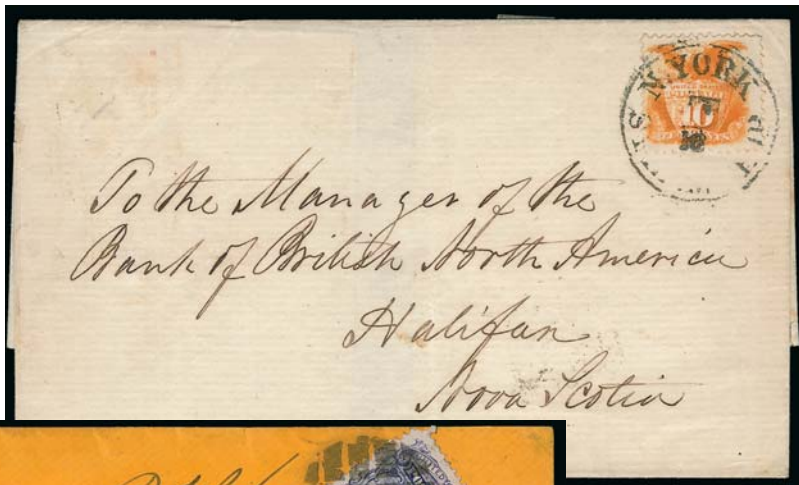 N. YORK
10
To the Manager of the
Bank of British North America
Halifax
Nova Scotia